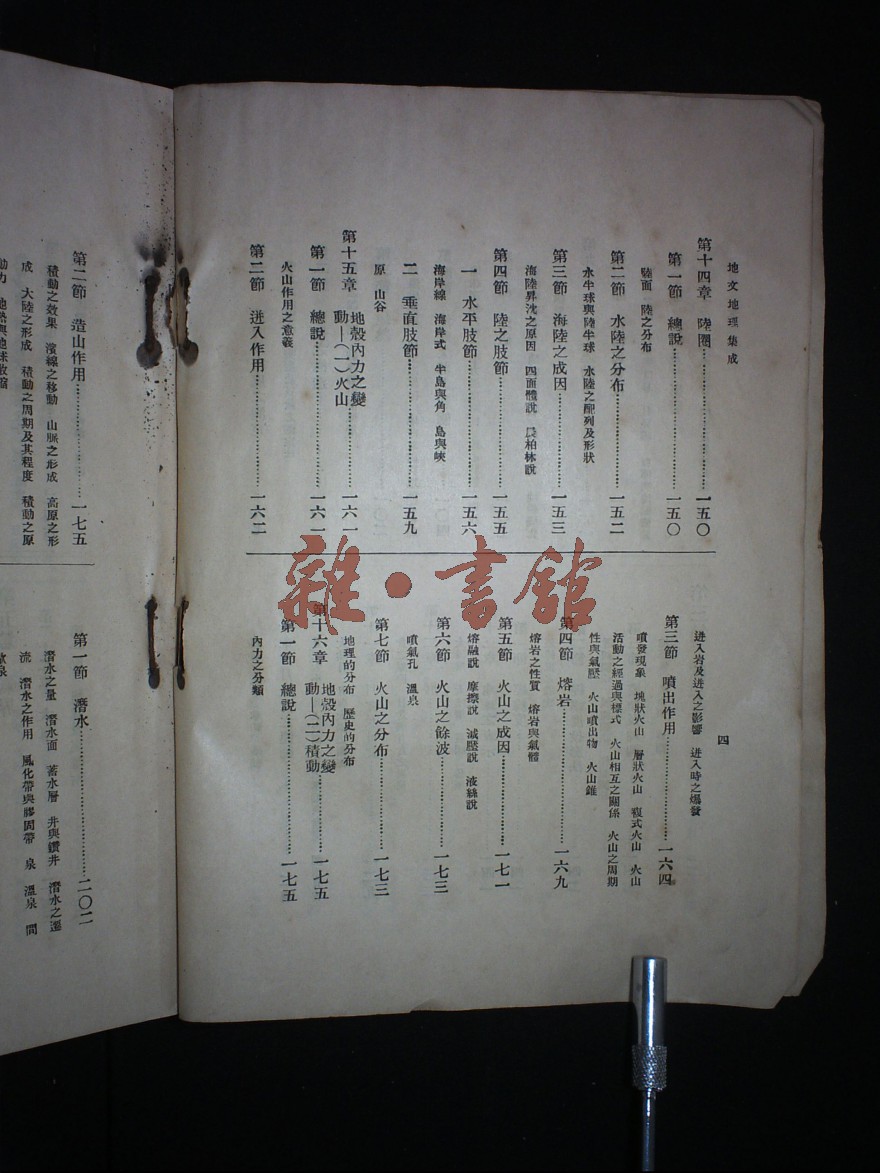 地文地理集成
四
第十四章 陸圈……………一五〇
第一節 總說……………一五〇
陸面 陸之分布
第二節 水陸之分布……………一五二
水半球與陸半球 水陸之配列及形狀
第三節 海陸之成因……………一五三
海陸昇沈之原因 四面體說 長柏林說
第四節 陸之肢節……………一五五
一 水平肢節……………一五六
海岸線 海岸式 半島與角 島與峽
二 垂直肢節……………一五九
原 山谷
第十五章 地殼內力之變動—(一)火山……………一六一
第一節 總說……………一六一
火山作用之意義
第二節 迸入作用……………一六二
迸入岩及迸入之影響 迸入時之爆發
第三節 噴出作用……………一六四
噴發現象 地狀火山 層狀火山 複式火山 火山
活動之經過與樣式 火山相互之關係 火山之周期
性與氣壓 火山噴出物 火山錐
第四節 熔岩……………一六九
熔岩之性質 熔岩與氣體
第五節 火山之成因……………一七一
熔融說 摩擦說 減壓說 液絲說
第六節 火山之餘波……………一七三
噴氣孔 溫泉
第七節 火山之分布……………一七三
地理的分布 歷史的分布
第十六章 地殼內力之變動—(二)積動……………一七五
第一節 總說……………一七五
內力之分類
雜·書館
第二節 造山作用……………一七五
積動之效果 濱線之移動 山脈之形成 高原之形
成 大陸之形成 積動之周期及其程度 積動之原
動力 地熱與地球收縮
第一節 潛水……………二〇二
潛水之量 潛水面 蓄水層 井與鑽井 潛水之還
流 潛水之作用 風化帶與膠固帶 泉 溫泉 間
歇泉